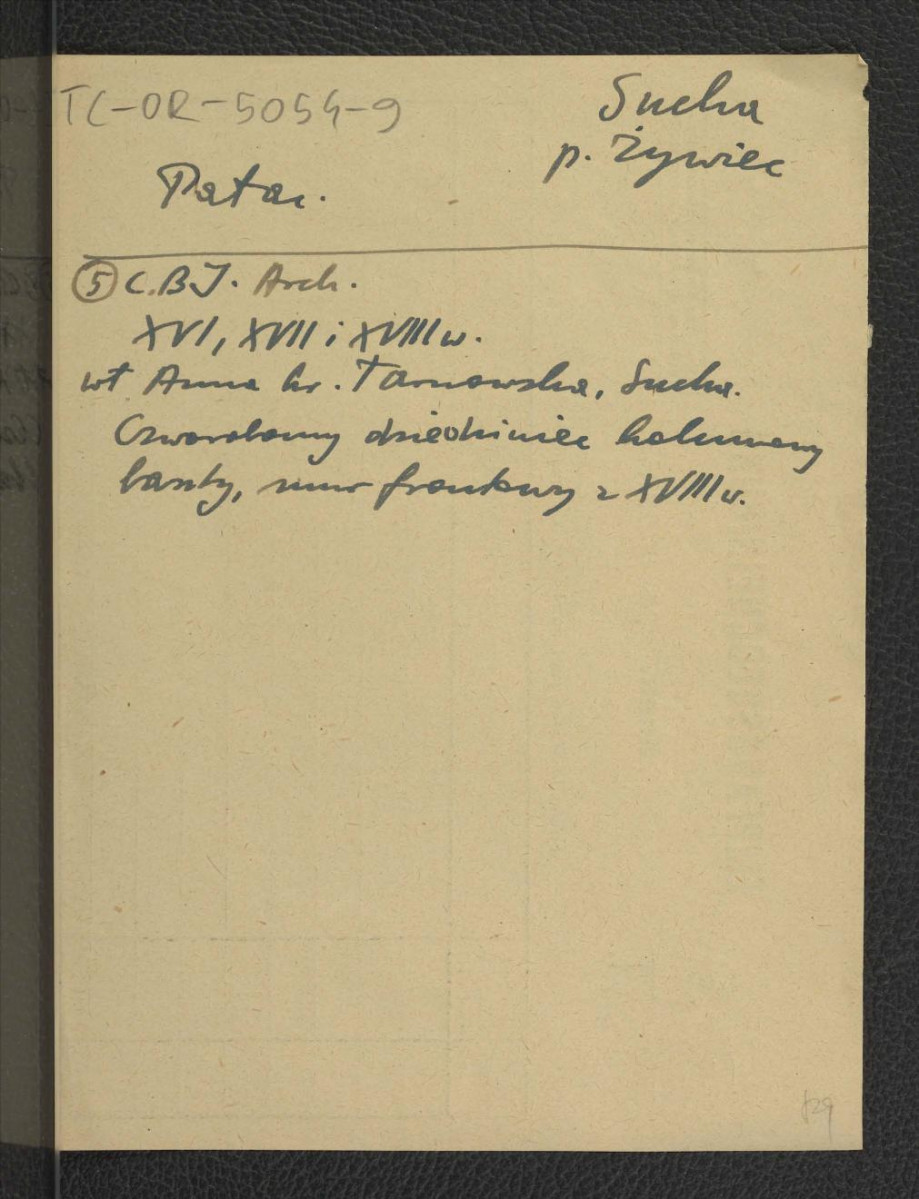 TC-OR-5054-9
Sucha
p. Żywiec
Pałac.
⑤ C.B.J. Arch.
XVI, XVII i XVIII w.
wł Anna hr. Tarnowska, Sucha.
Czworoboczny dziedziniec kolumnowy
baszty, mur frontowy z XVIII w.